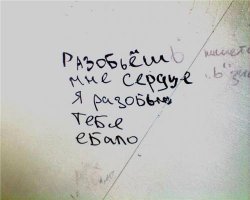 РАЗОБЬЁШЬ
мне сердце
я разобью
тебе
ебало